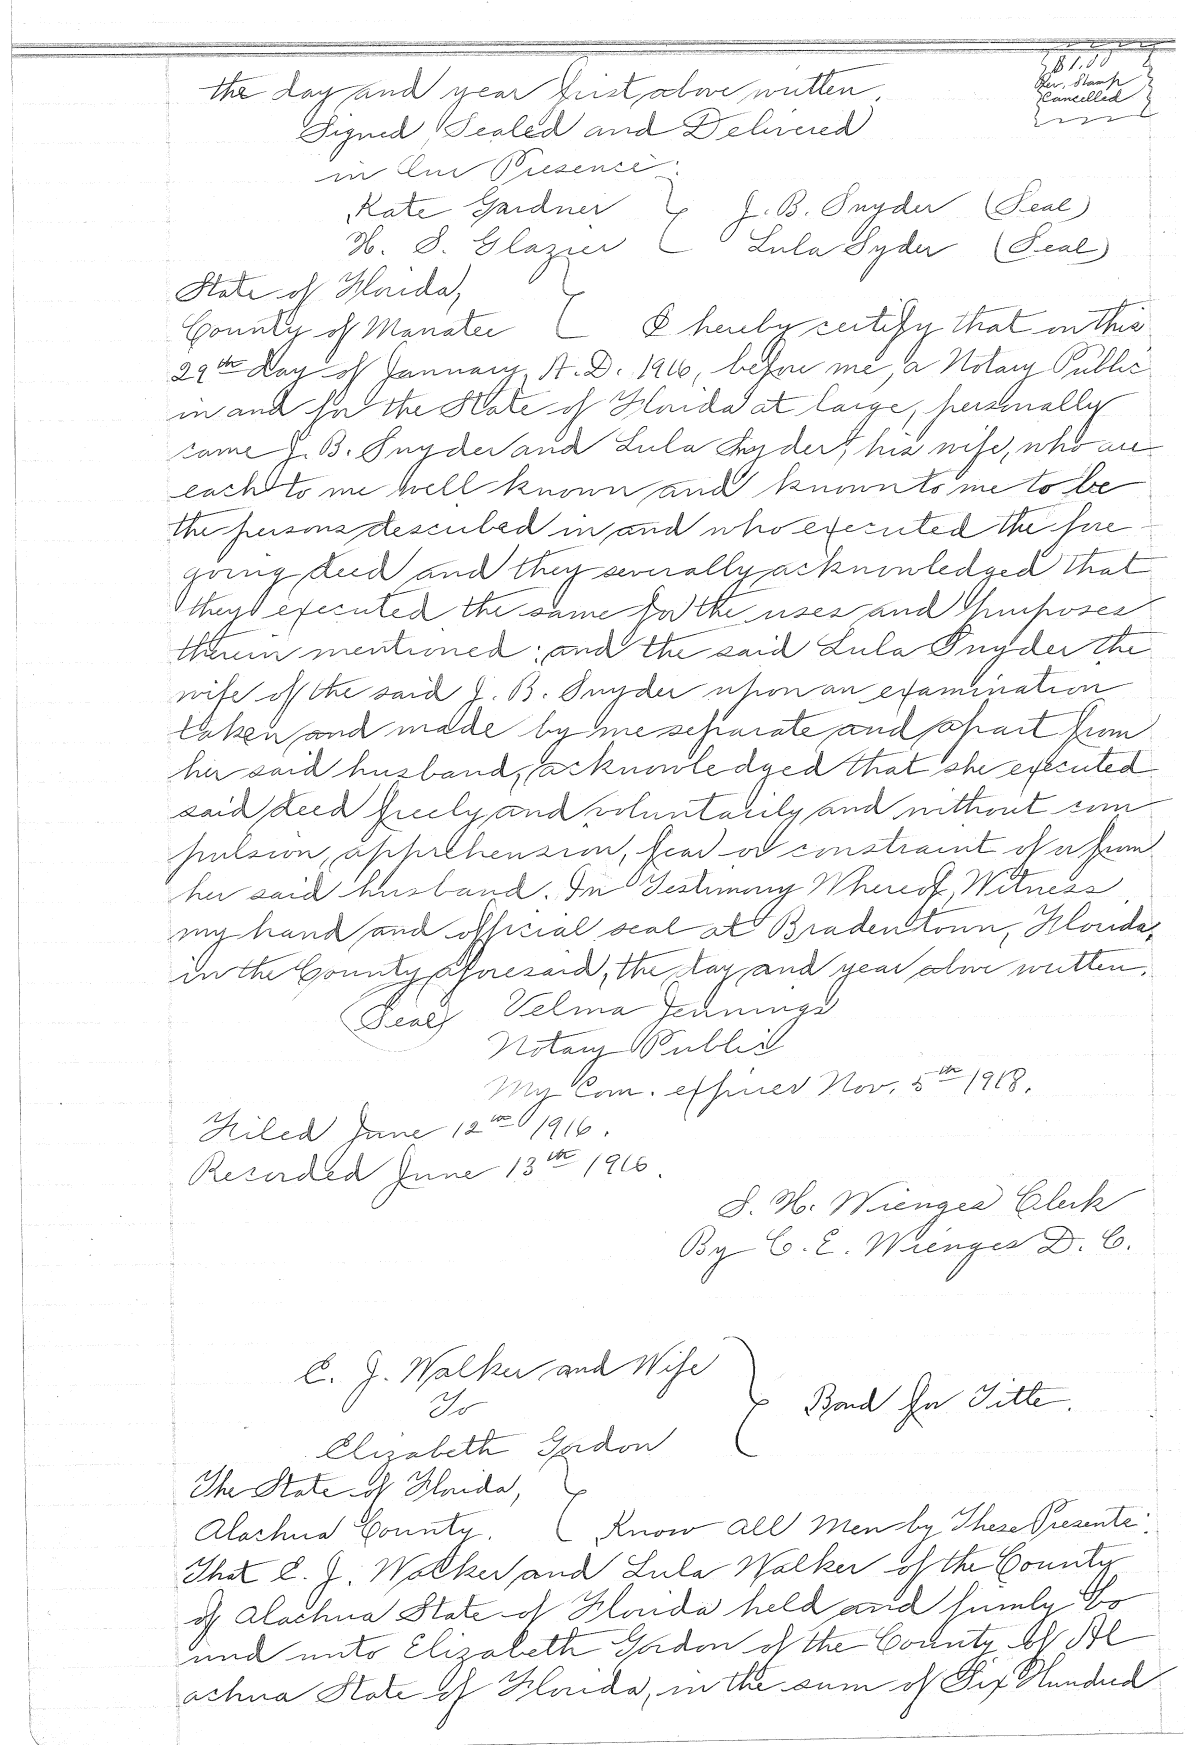 $1.00
Rev. Stamp
Cancelled
the day and year first above written.
Signed Sealed and Delivered
in Our Presence:
Kate Gardner J. B. Snyder (Seal)
H. S. Glazier Lula Syder (Seal)
State of Florida,
County of Manatee I hereby certify that on this
29th day of January, A. D. 1916, before me, a Notary Public
in and for the State of Florida at large, personally
came J. B. Snyder and Lula Snyder, his wife, who are
each to me well known and known to me to be
the persons described in and who executed the fore-
going deed and they severally acknowledged that
they executed the same for the uses and purposes
therein mentioned; and the said Lula Snyder the
wife of the said J. B. Snyder upon an examination
taken and made by me separate and apart from
her said husband, acknowledged that she executed
said deed freely and voluntarily and without com
pulsion, apprehension, fear or constraint of or from
her said husband. In Testimony Whereof, Witness
my hand and official seal at Bradentown, Florida,
in the County aforesaid, the day and year above written.
(Seal) Velma Jennings
Notary Public
My Com. expires Nov. 5th 1918.
Filed June 12th 1916.
Recorded June 13th 1916.
S. H. Wienges Clerk
By C. E. Wienges D. C.
E. J. Walker and Wife
To Bond for Title.
Elizabeth Gordon
The State of Florida,
Alachua County. Know all Men by These Presents:
That E. J. Walker and Lula Walker of the County
of Alachua State of Florida held and firmly bo
und unto Elizabeth Gordon of the County of Al
achua State of Florida, in the sum of Six Hundred